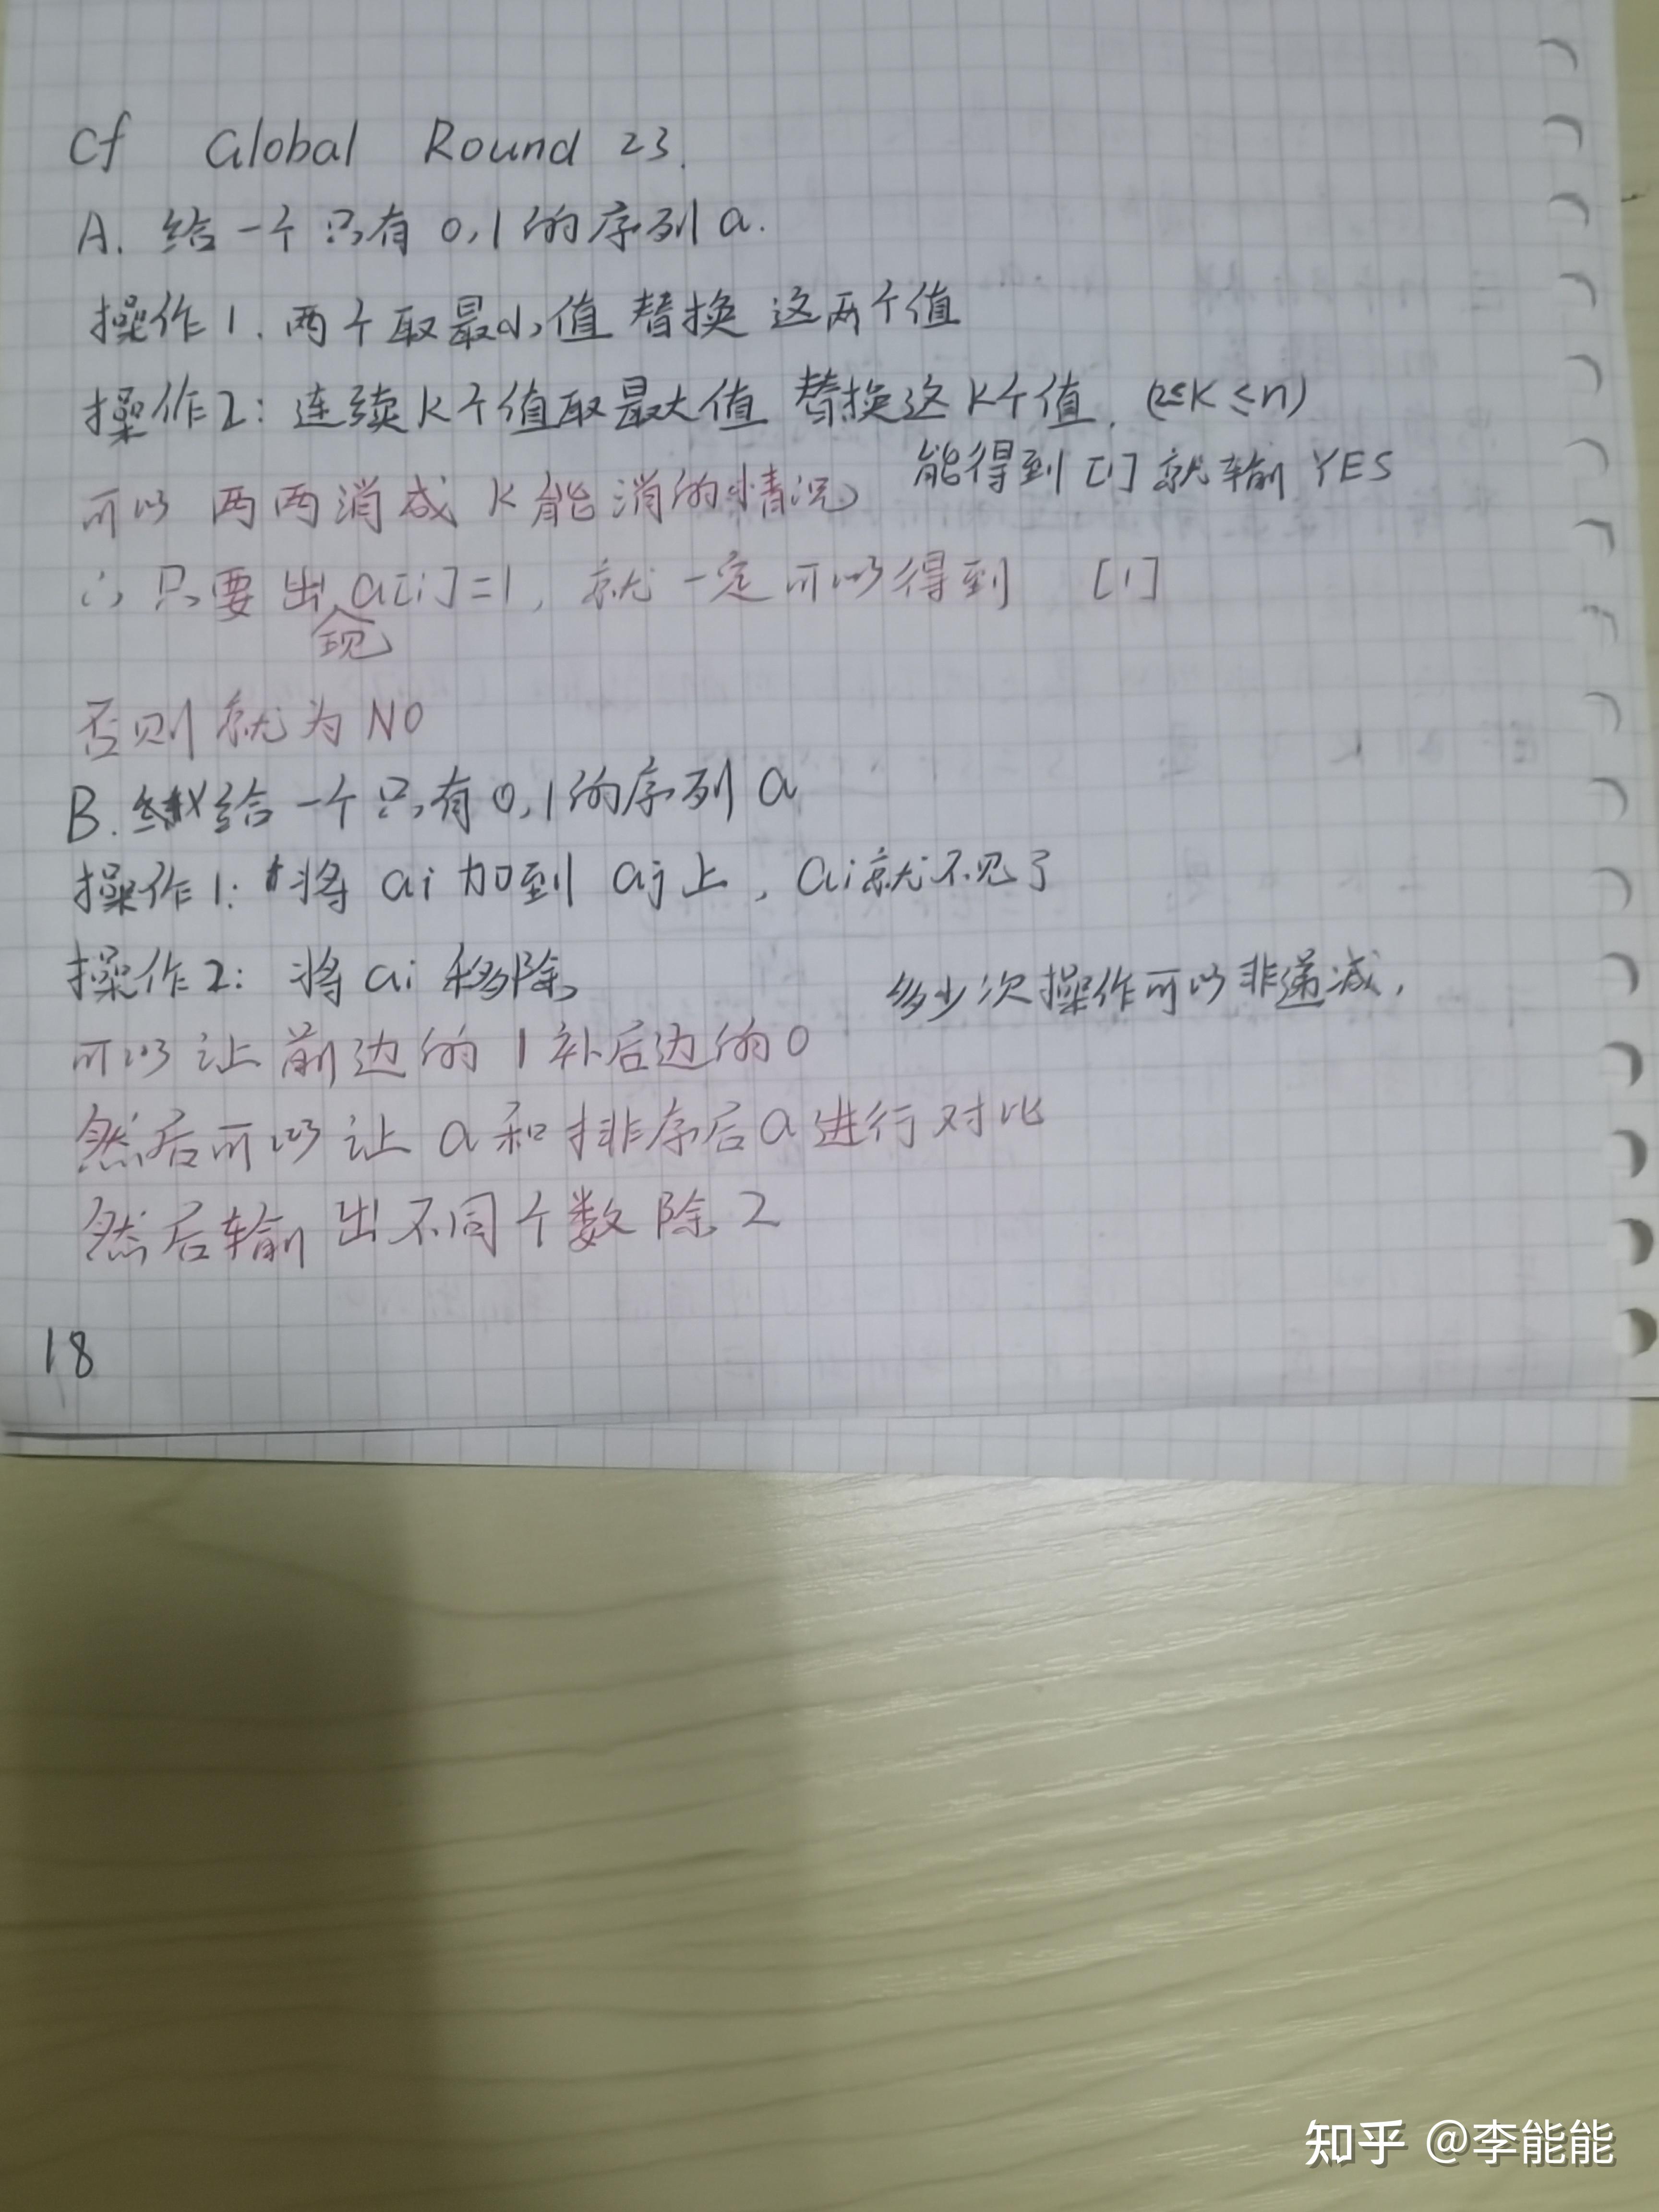 Cf Global Round 23.
A. 给一个只有0,1的序列a.
操作1.两个取最小值 替换 这两个值
操作2:连续K个值取最大值 替换这K个值.(2≤K≤n)
能得到[1]就输YES
可以 两两消成 K能消的情况
∴只要出现a[i]=1,就一定可以得到 [1]
否则就为NO
B. 给一个只有0,1的序列a
操作1: 将ai加到aj上,ai就不见了
操作2: 将ai移除
多少次操作可以非递减.
可以让前边的1补后边的0
然后可以让a和排序后a进行对比
然后输出不同个数除2
18
知乎 @李能能